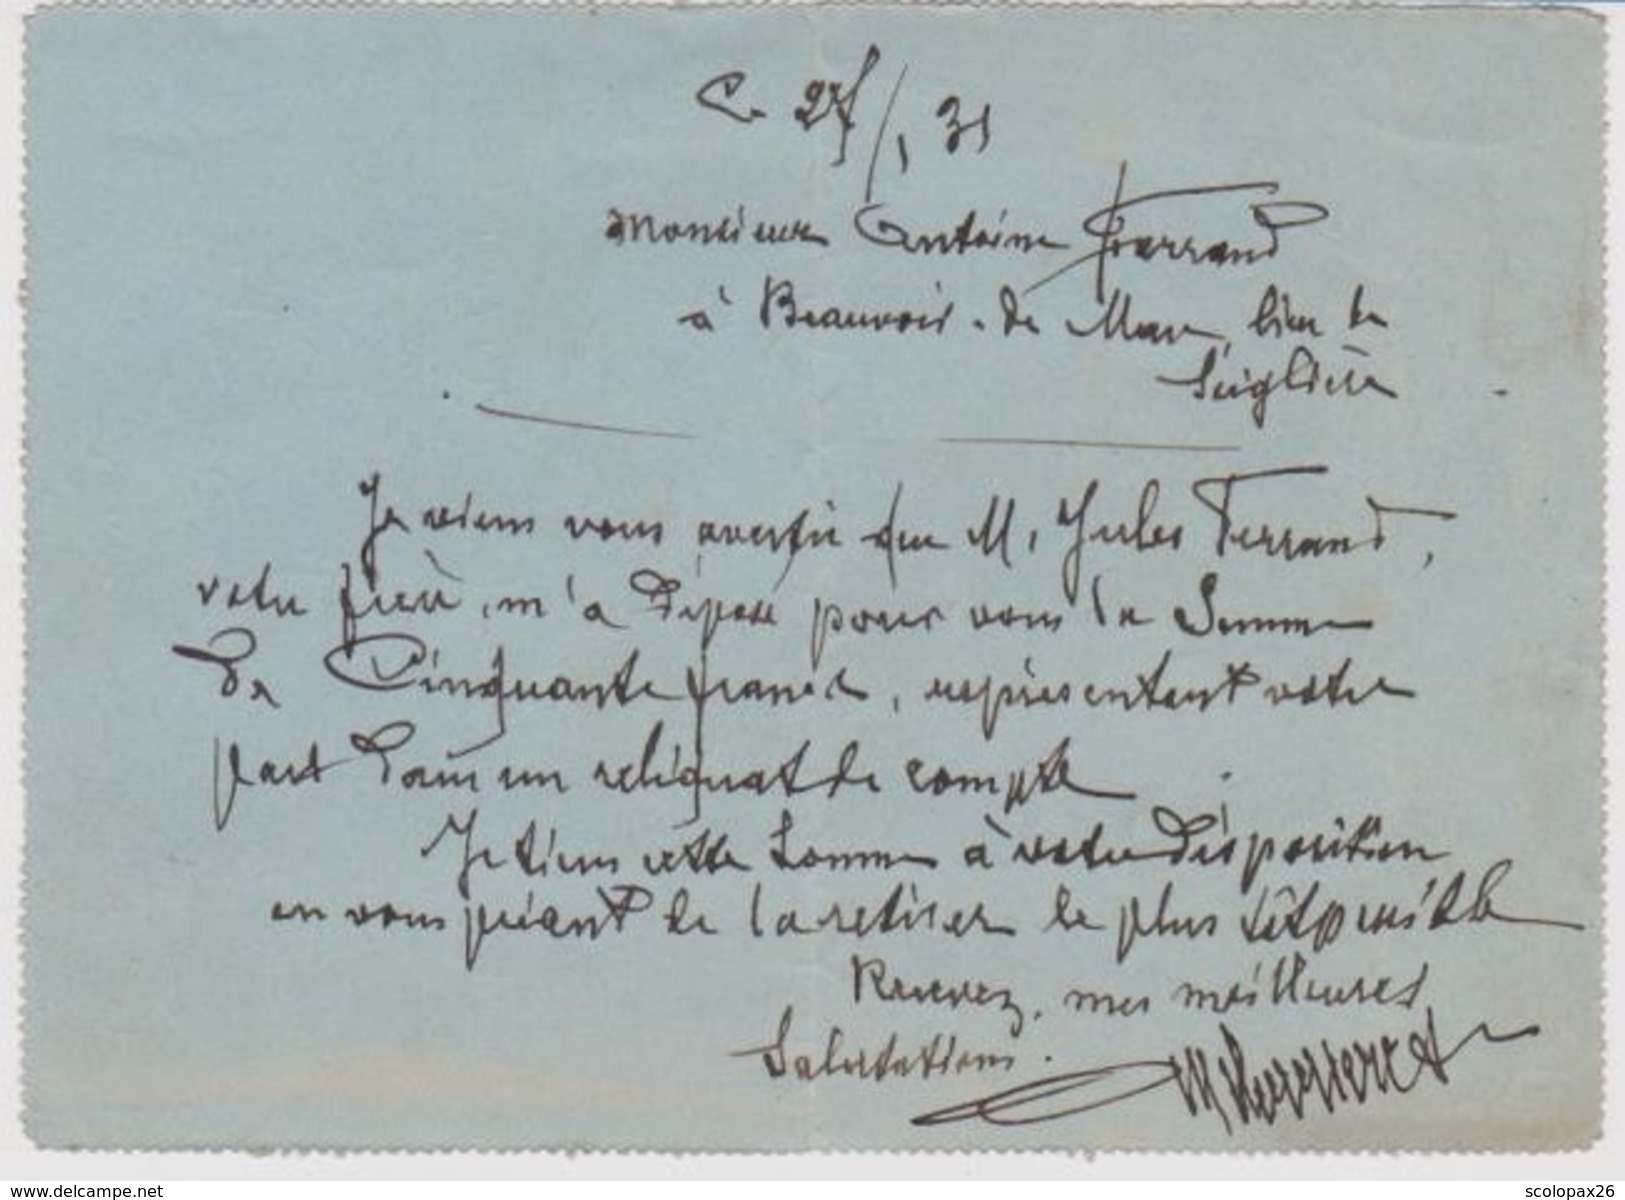 Ce 27/1 31
Monsieur Antoine Ferrand
à Beauvoir-de Marc, lieu de
Seiglière
Je viens vous avertir que M. Jules Ferrand,
votre frère, m'a déposé pour vous la Somme
De Cinquante francs, représentant votre
part dans un reliquat de compte
Je tiens cette Somme à votre disposition
en vous priant de la retirer le plus tôt possible
Recevez, mes meilleures
Salutations.
www.delcampe.net
scolopax26